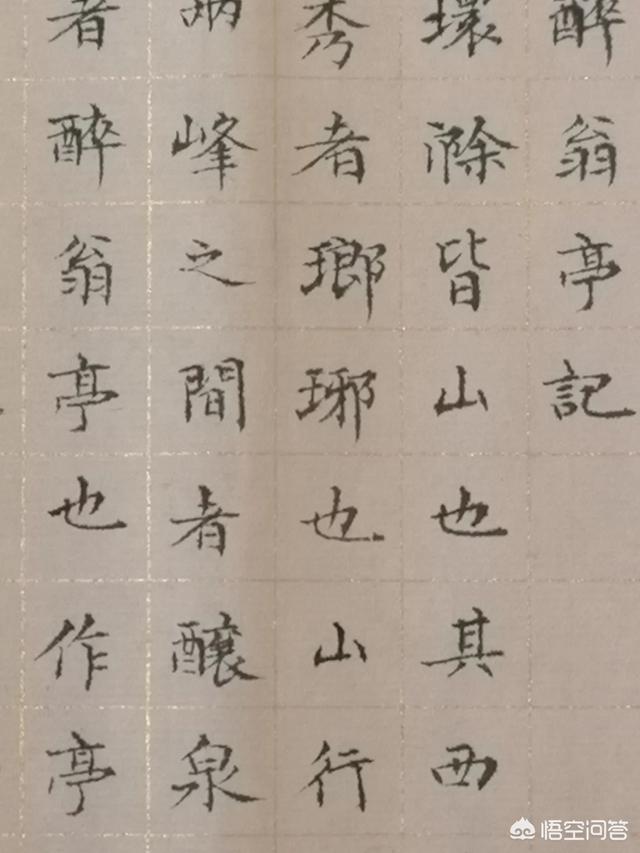 醉翁亭記
環滁皆山也其西
秀者瑯琊也山行
峰之間者釀泉
者醉翁亭也作亭
悟空问答